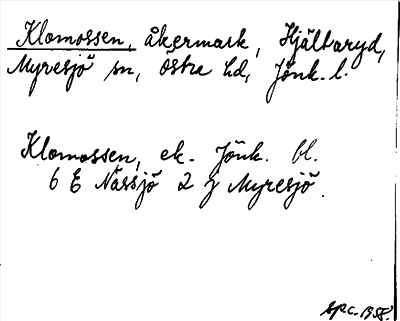 Klomossen, åkermark, Hjältaryd,
Myresjö sn, Östra hd, Jönk. l.
Klomossen, ek. Jönk. bl.
6 E Nässjö 2 j Myresjö.
1958.